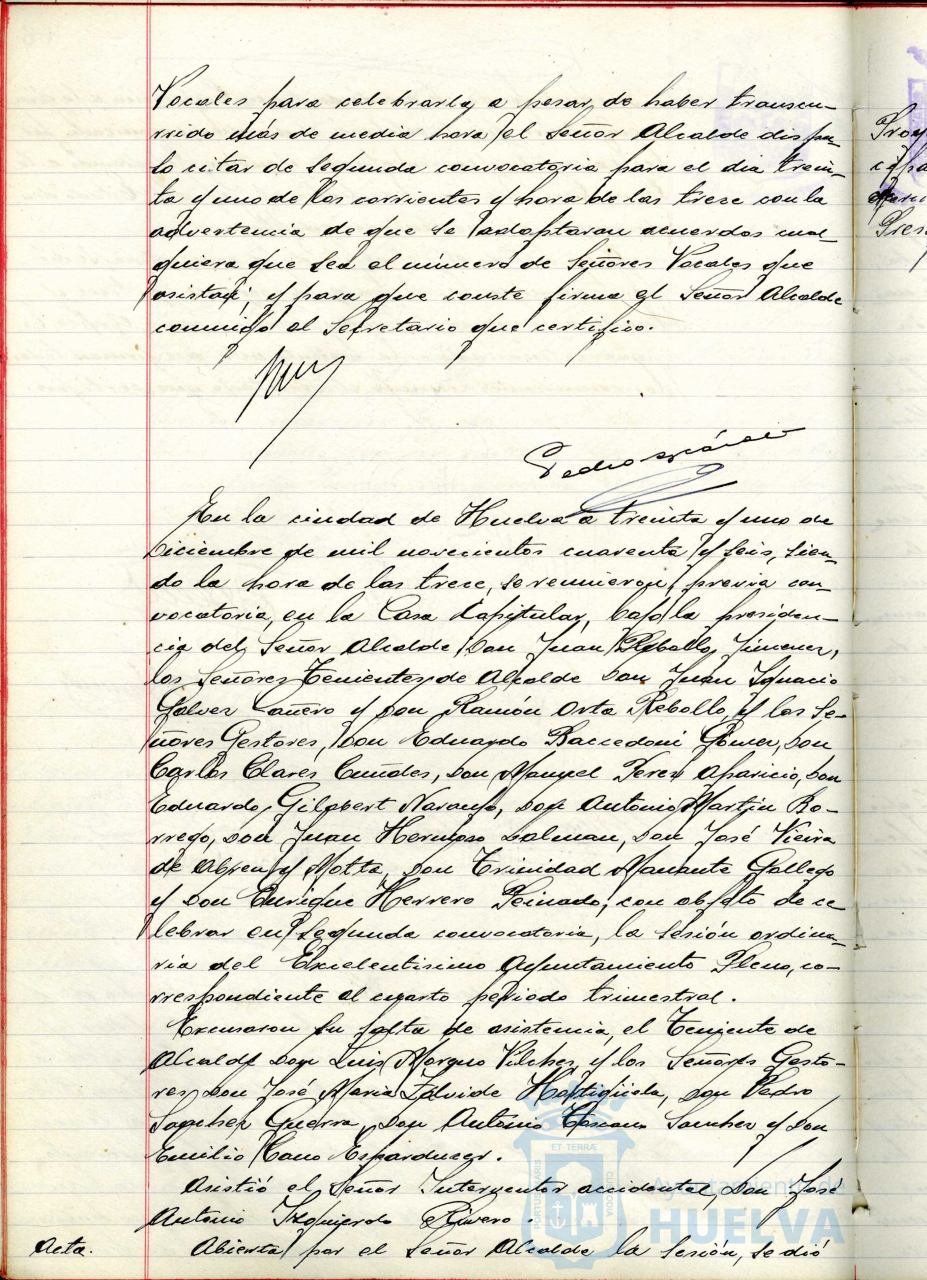 Vocales para celebrarla, a pesar de haber transcu-
rrido más de media hora, el Señor Alcalde dispu-
so citar de segunda convocatoria para el dia trein-
ta y uno de los corrientes y hora de las trece con la
advertencia de que se adoptaran acuerdos cual-
quiera que sea el número de Señores Vocales que
asistan; y para que conste firma el Señor Alcalde
conmigo el Secretario que certifico.
Pedro
En la ciudad de Huelva a treinta y uno de
Diciembre de mil novecientos cuarenta y seis, sien-
do la hora de las trece, se reunieron, previa con-
vocatoria, en la Casa Capitular, bajo la presiden-
cia del Señor Alcalde Don Juan Rebollo Jimenez,
los Señores Tenientes de Alcalde Don Juan Ignacio
Galvez Cañero y Don Ramón Orta Rebollo, y los Se-
ñores Gestores, Don Eduardo Baccedoni Gomez, Don
Carlos Clarés Cuñdes, Don Manuel Perez Aparicio, Don
Eduardo Gilabert Naranjo, Don Antonio Martin Bo-
rrego, Don Juan Hermoso Dalman, Don José Vieira
de Abreu y Motta, Don Trinidad Navante Gallego
y Don Enrique Herrero Peinado; con objeto de ce-
lebrar en segunda convocatoria, la sesión ordina-
ria del Excelentisimo Ayuntamiento Pleno, co-
rrespondiente al cuarto periodo trimestral.
Excusaron su falta de asistencia, el Teniente de
Alcalde Don Luis Vilchez y los Señores Gesto-
res Don José Maria Don Pedro
Sanchez Guerra, Don Antonio Toscano Sanchez y Don
Emilio Cano
Asistió el Señor Interventor accidental, Don José
Antonio Izquierdo Rivero.
Acta. Abierta por el Señor Alcalde la sesión, se dió
Ayuntamiento de
HUELVA